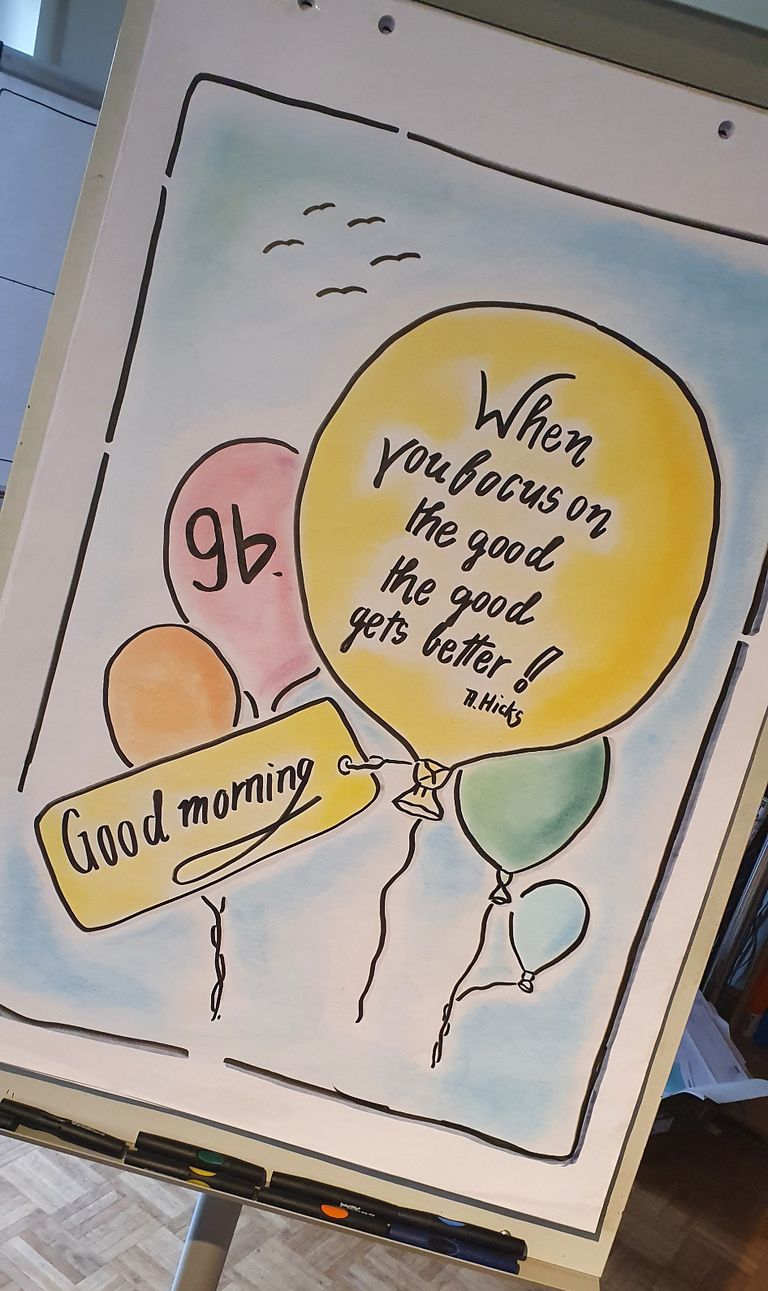 When
you focus on
the good
the good
gets better!!
A. Hicks
gb.
Good morning